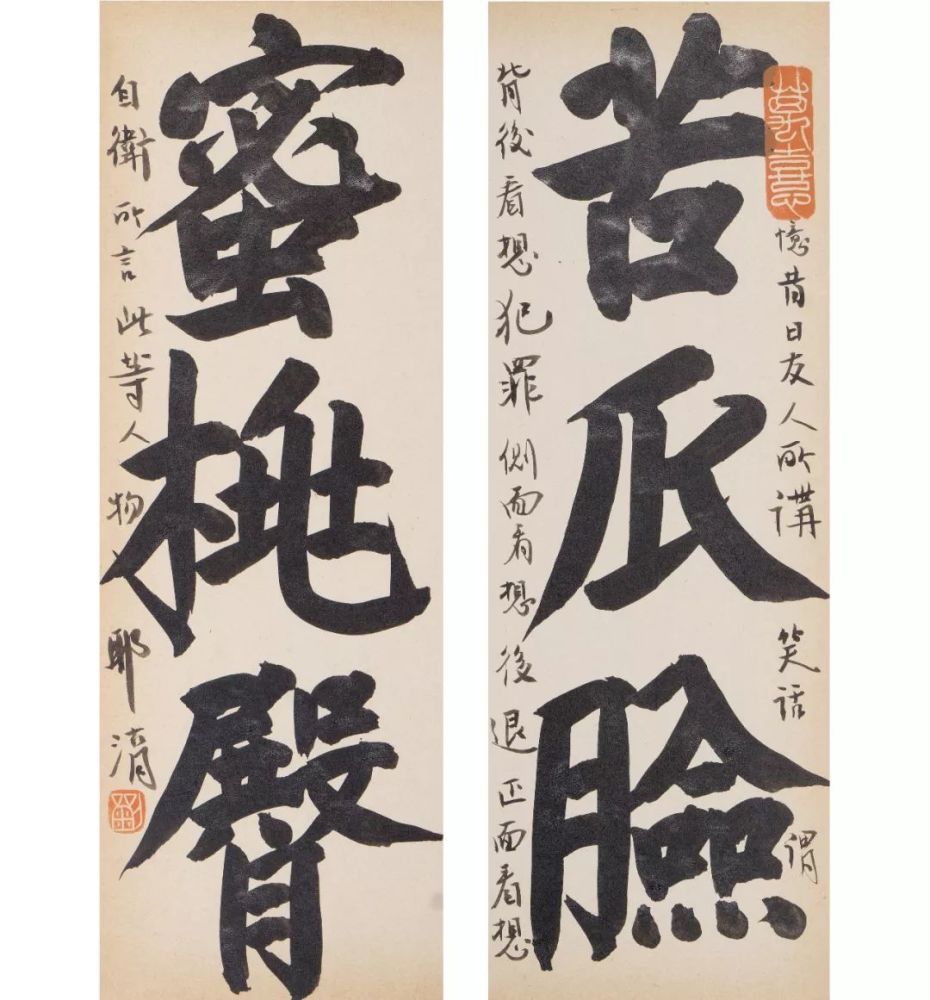 苦瓜臉
憶昔日友人所講笑話謂
背後看想犯罪側面看想後退正面看想
蜜桃臀
自衛所言此等人物耶